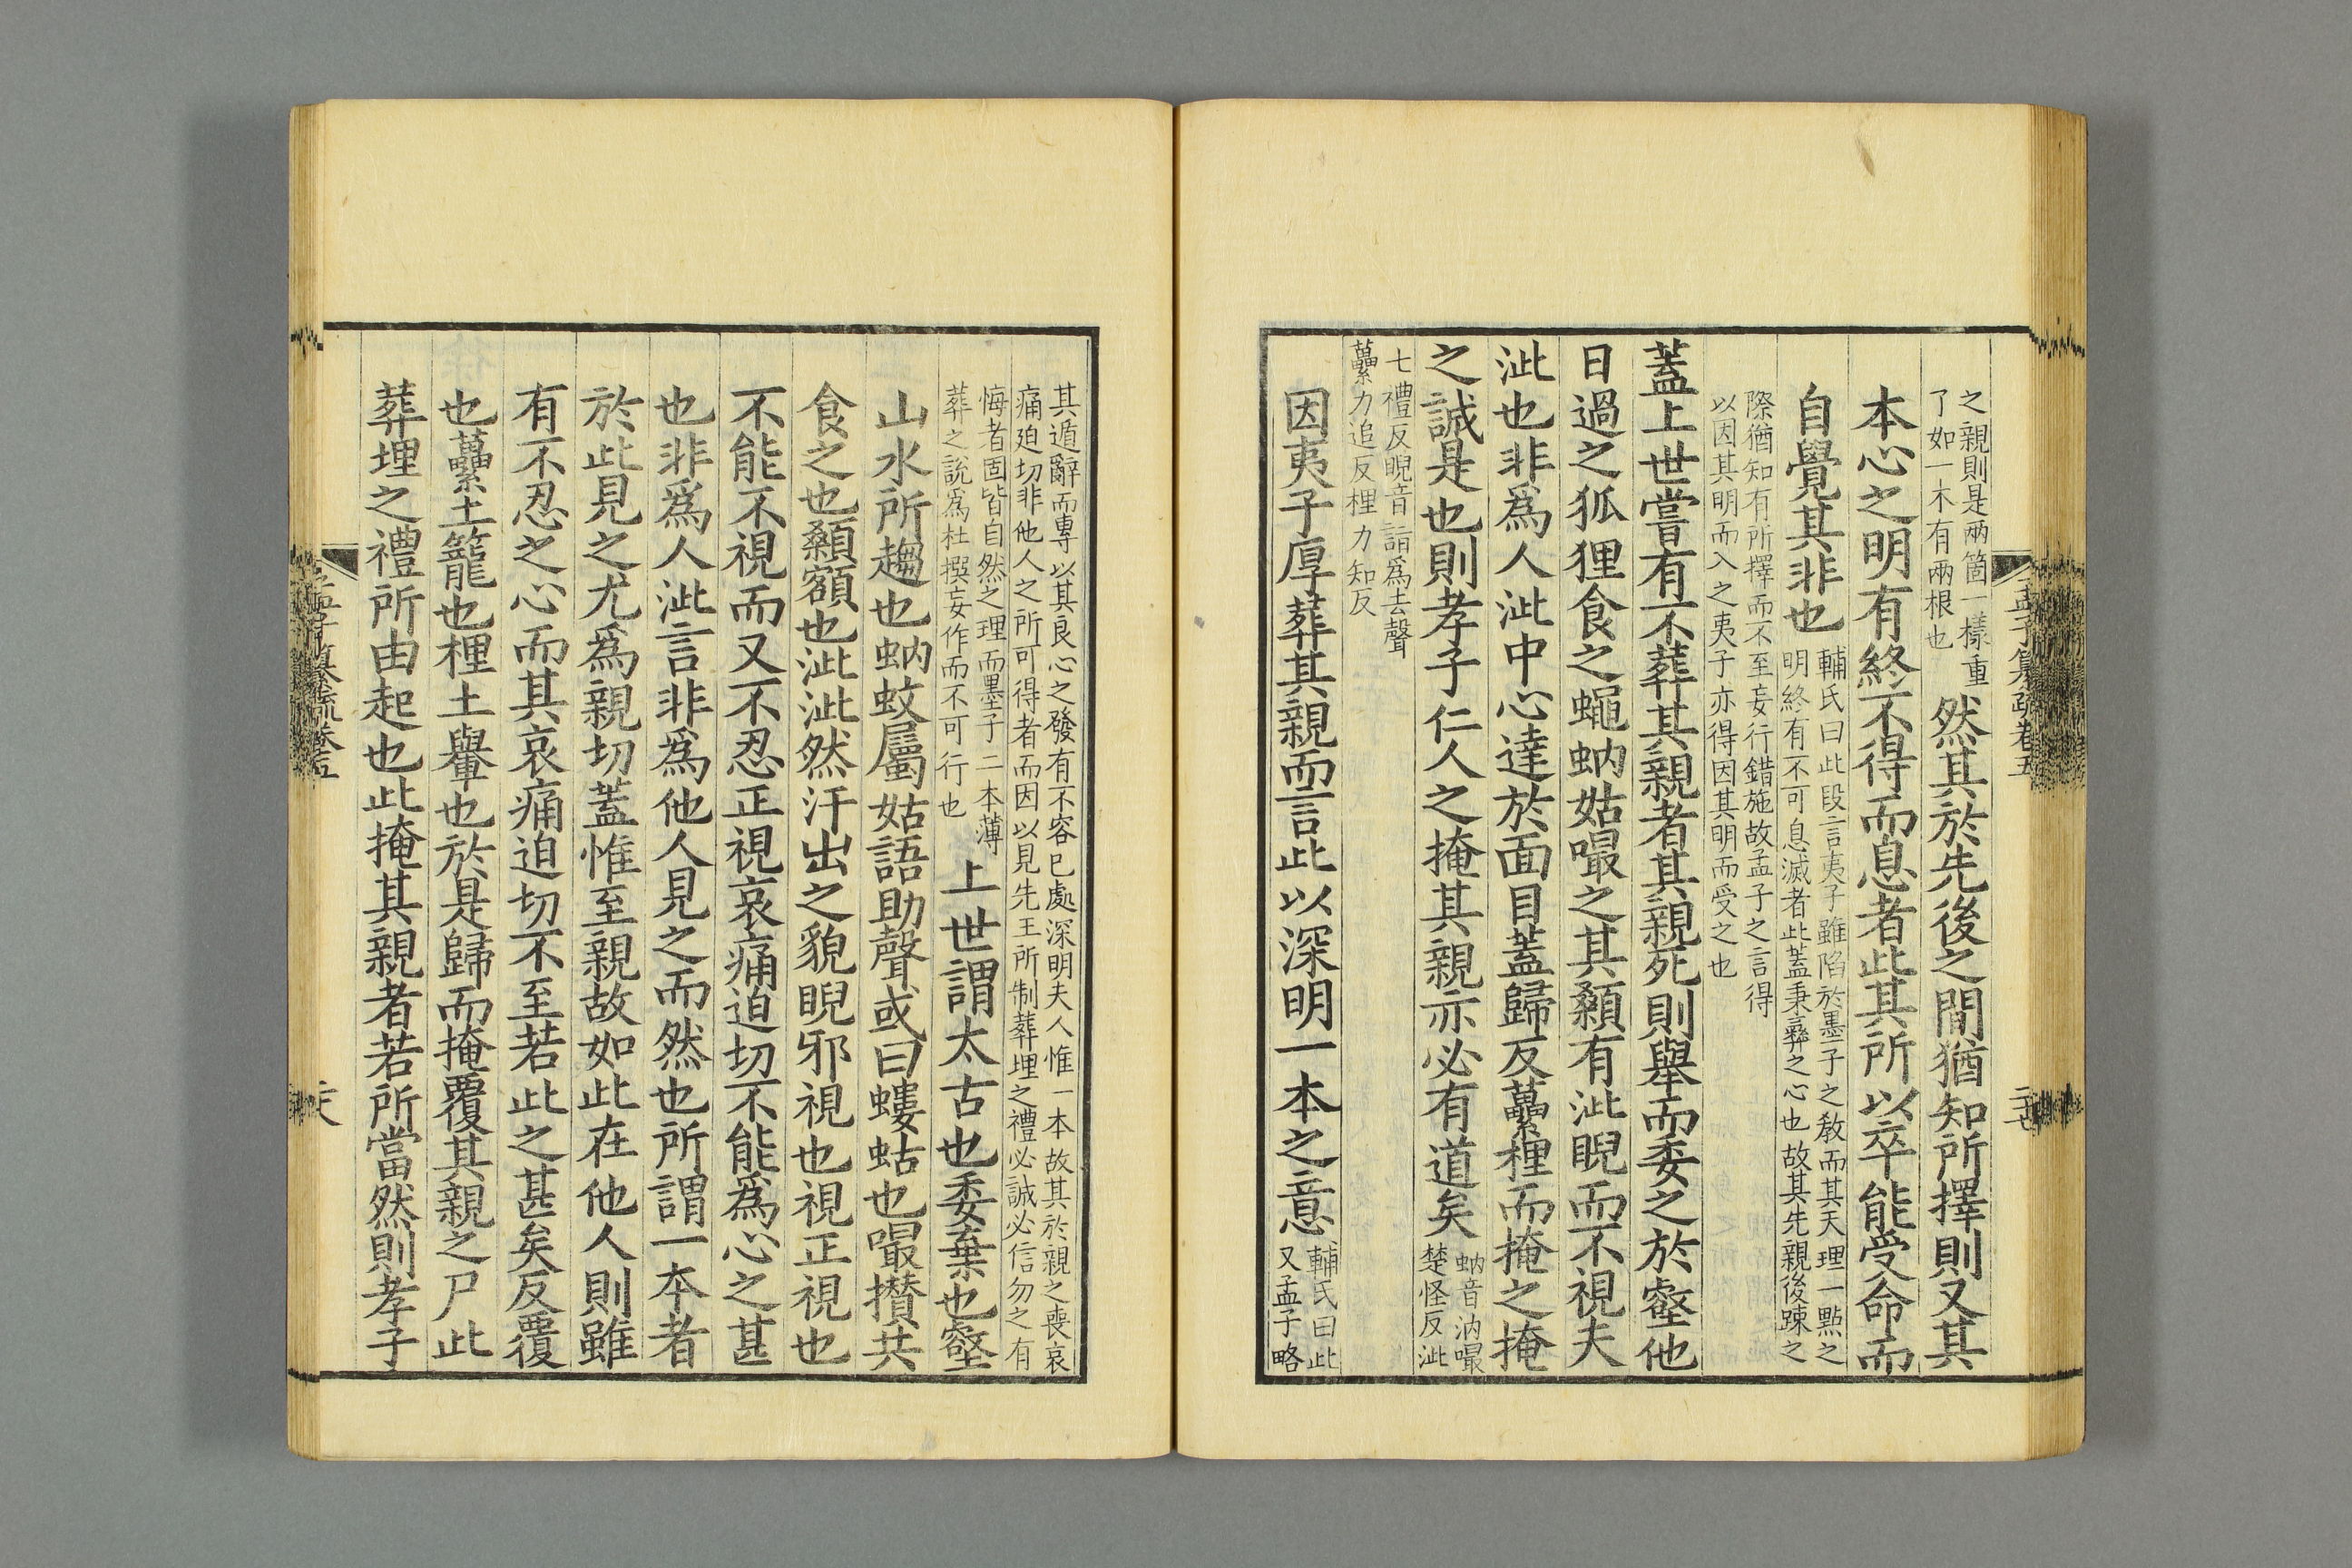 之親則是兩箇一樣重
了如一木有兩根也
然其於先後之間猶知所擇則又其
本心之明有終不得而息者此其所以卒能受命而
自覺其非也
輔氏曰此段言夷子雖陷於墨子之教而其天理一點之
明終有不可息滅者此蓋秉彝之心也故其先親後踈之
際猶知有所擇而不至妄行錯施故孟子之言得
以因其明而入之夷子亦得因其明而受之也
蓋上世嘗有不葬其親者其親死則舉而委之於壑他
日過之狐狸食之蠅蚋姑嘬之其顙有泚睨而不視夫
泚也非爲人泚中心達於面目蓋歸反虆梩而掩之掩
之誠是也則孝子仁人之掩其親亦必有道矣
蚋音汭嘬
楚怪反泚
七禮反睨音詣爲去聲
虆力追反梩力知反
因夷子厚葬其親而言此以深明一本之意
輔氏曰此
又孟子略
孟子纂疏卷五
二十七
其遁辭而專以其良心之發有不容已處深明夫人惟一本故其於親之喪哀
痛廹切非他人之所可得者而因以見先王所制葬埋之禮必誠必信勿之有
悔者固皆自然之理而墨子二本薄
葬之說爲杜撰妄作而不可行也
上世謂太古也委棄也壑
山水所趨也蚋蚊屬姑語助聲或曰螻蛄也嘬攅共
食之也顙額也泚泚然汗出之貌睨邪視也視正視也
不能不視而又不忍正視哀痛迫切不能爲心之甚
也非爲人泚言非爲他人見之而然也所謂一本者
於此見之尤爲親切蓋惟至親故如此在他人則雖
有不忍之心而其哀痛迫切不至若此之甚矣反覆
也虆土籠也梩土轝也於是歸而掩覆其親之尸此
葬埋之禮所由起也此掩其親者若所當然則孝子
孟子纂疏卷五